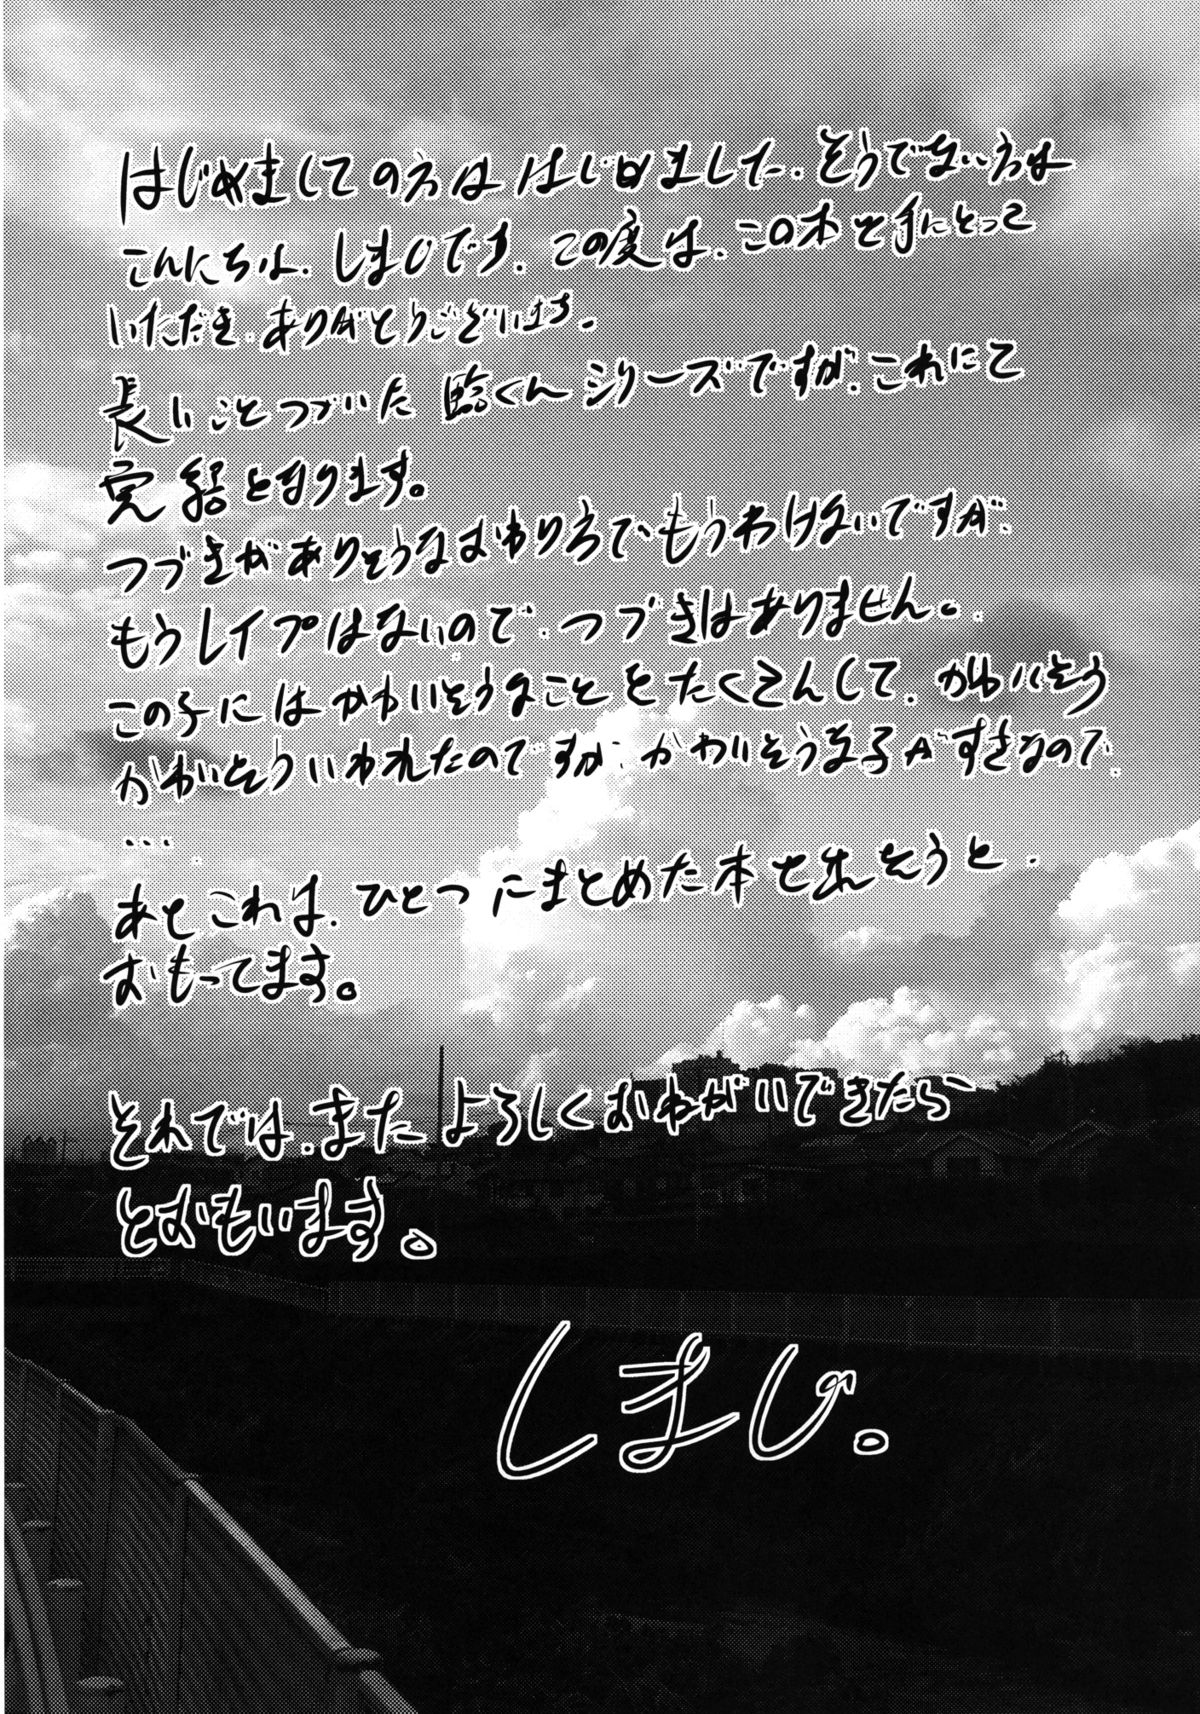 はじめましての方ははじめました、そうでない方は
こんにちは、しまじです。この度は、この本を手にとって
いただき、ありがとうございます。
長いことつづいた臨くんシリーズですが、これにて
完結となります。
つづきがありそうなおわり方でもうわけないですが、
もうレイプはないので、つづきはありません。
この子にはかわいそうなことをたくさんして、かわいそう
かわいそういわれたのですが、かわいそうな子がすきなので、
...
あとこれは、ひとつにまとめた本を出そうと、
おもってます。
それでは、またよろしくおねがいできたら
とおもいます。
しまじ。